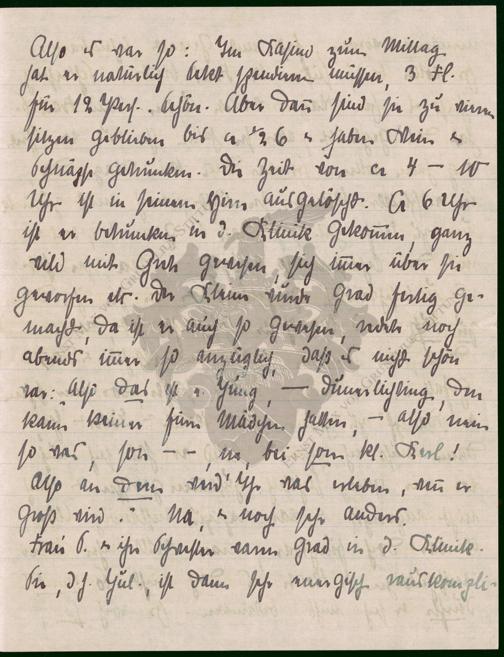 Also es war so: Im Kasino zum Mittag
hat er natürlich Sekt spendieren müssen, 3 Fl.
für 12 Pers.. Schön. Aber dann sind sie zu vieren
sitzen geblieben bis ca 1/2 6 u haben Wein u
Schnäpse getrunken. Die Zeit von ca 4 – 10
Uhr ist in seinem Hirn ausgelöscht. Ca 6 Uhr
ist er betrunken in d. Klinik gekommen, ganz
wild mit Grete gewesen, sich immer über sie
geworfen etc. Der Kleine wurde Grad fertig ge-
macht, da ist er auch so gewesen, redete noch
abends immer so anzüglich, daß es nicht schön
war: „Also das ist e Jüng, – – dünnerlichting, den
kann keiner fürn Mädchen halten, – also nein
so was, son – –, ne, bei som kl. Kerl!
Also an dem werd' Ihr was erleben, wenn er
groß wird." Na, u noch sehr anders.
Frau S. u ihre Schwester waren Grad in d. Klinik.
Sie, d.h. Jul., ist dann sehr energisch rauskompli-